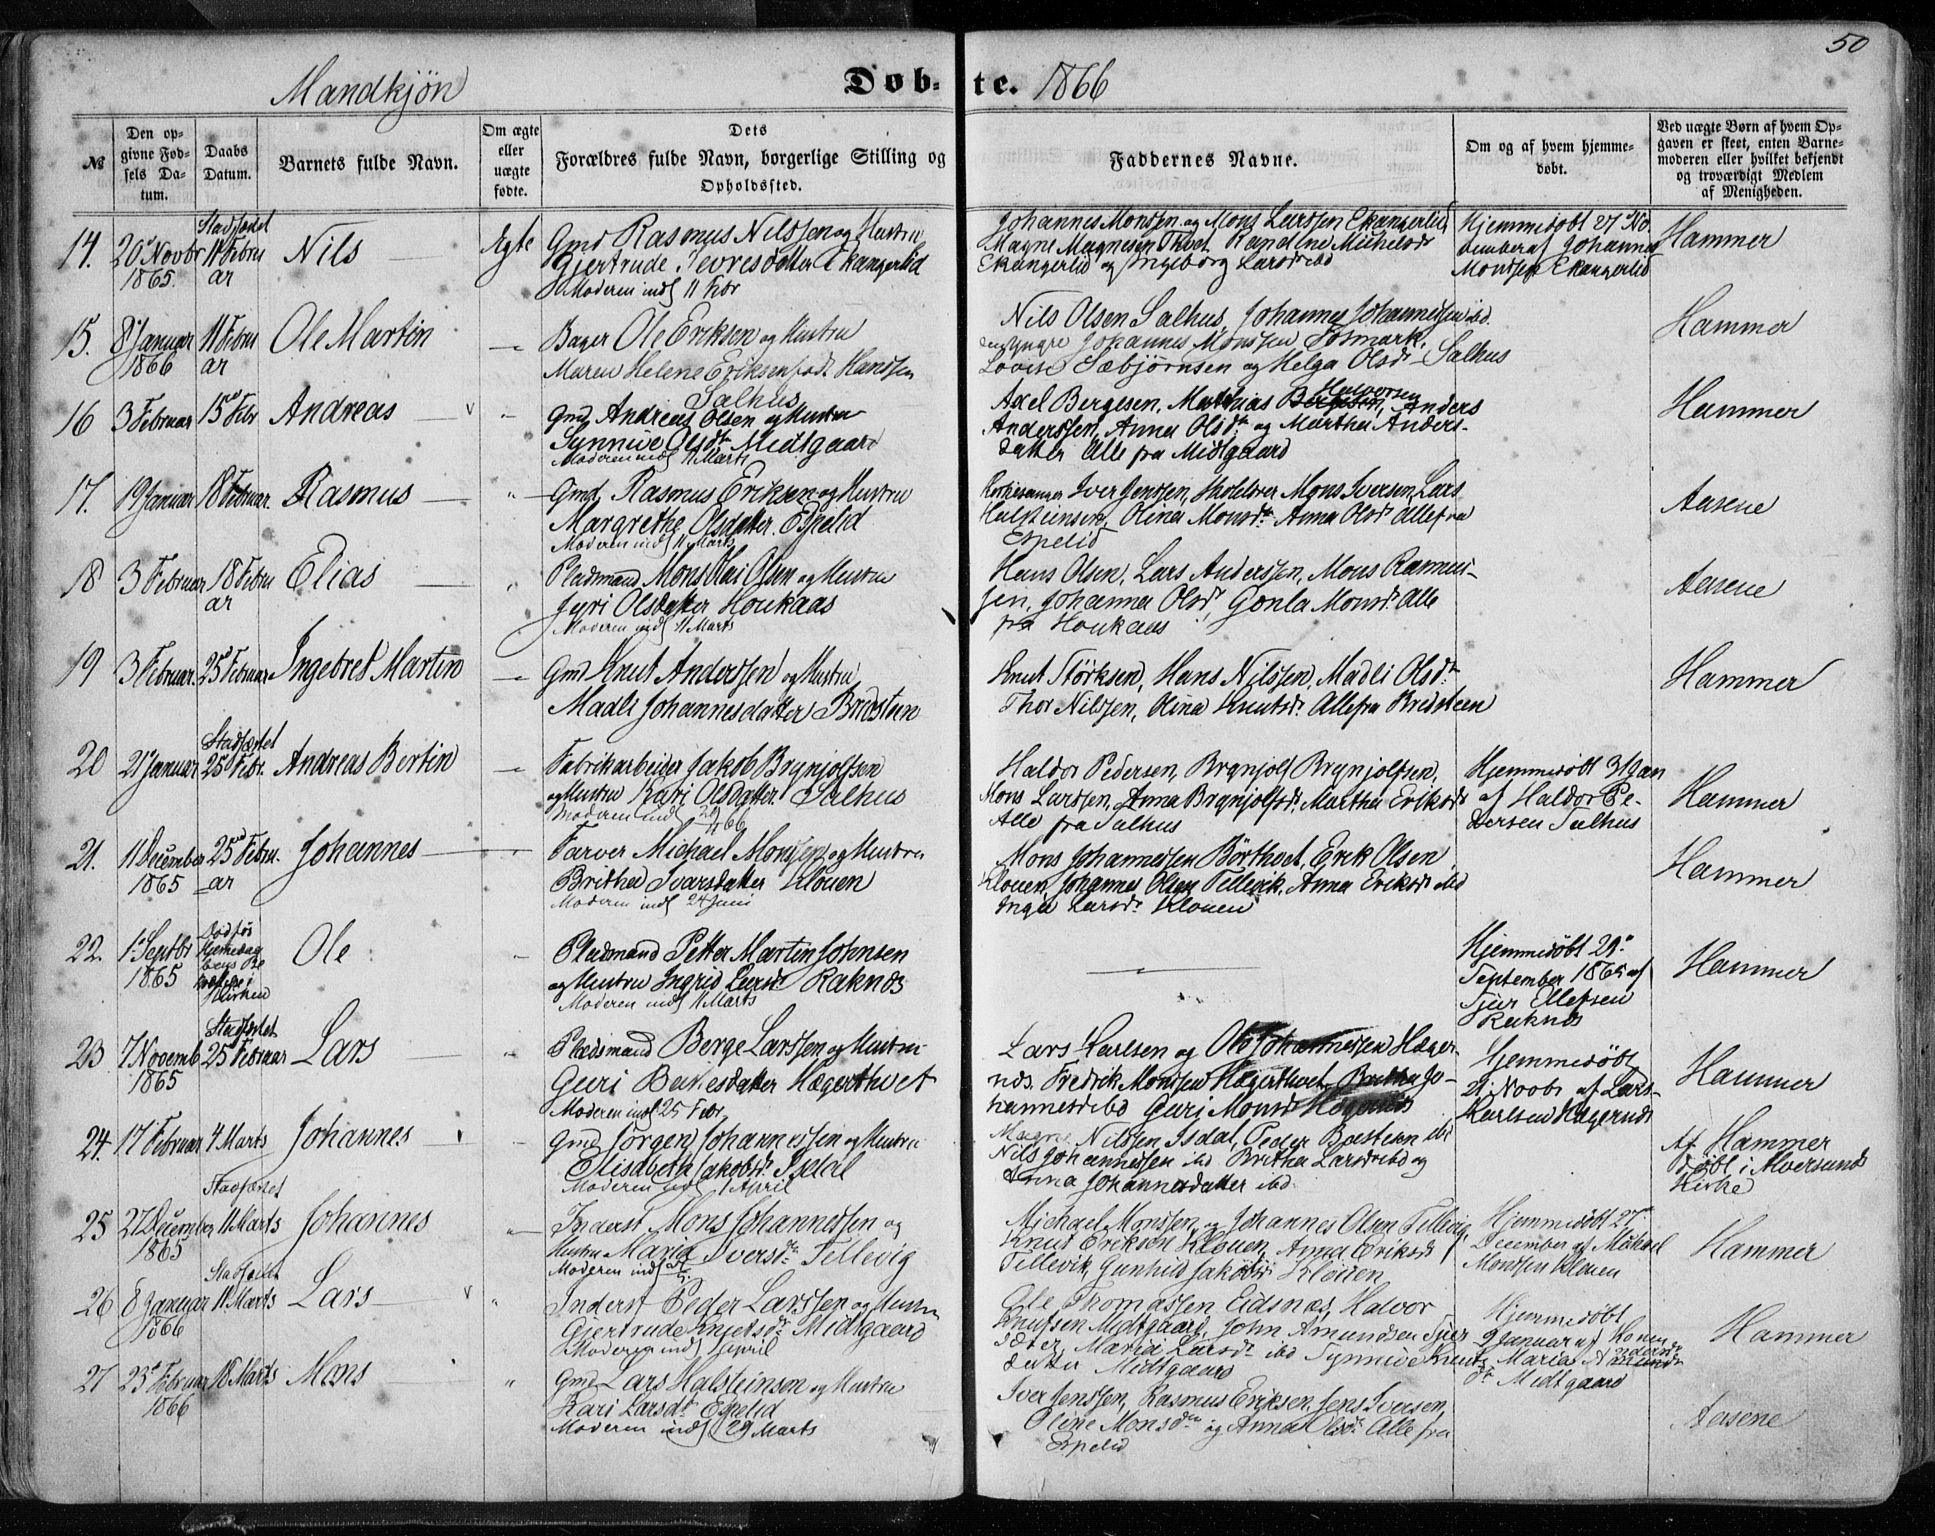 50
Mandkjøn
Döb-te. 1866
№
Den opgivne Fødsels Datum.
Daabs Datum.
Barnets fulde Navn.
Om ægte eller uægte fødte.
Dets Forældres fulde Navn, borgerlige Stilling og Opholdssted.
Faddernes Navne.
Om og af hvem hjemmedøbt.
Ved uægte Børn af hvem Opgaven er skeet, enten Barnemoderen eller hvilket bekjendt og troværdigt Medlem af Menigheden.
14. 20 Novbr 1865. Stadfæstet 11 Februar Nils Ægte
Gmd Rasmus Nilssen og Hustru
Gjertrude Iversdatter Ekangerlid
Moderen indl 11 Febr
Johannes Monsen og Mons Larssen Ekangerlid
Magne Magnesen Tvedt Randine Michelsdr
Ekangerlid og Ingeborg Larsdr ibd
Hjemmedøbt 27 November af Johannes
Mondsen Ekangerlid
Hammer
15. 8 Januar 1866 11 Februar Ole Martin
Bager Ole Eriksen og Hustru
Maren Helene Eriksen født Handsen
Salhus
Nils Olsen Salhus, Johannes Johannessen ibd
den yngre Johannes Monsen Tosmark,
Lovise Sæbjørnsen og Helga Olsdr Salhus
Hammer
16 3 Februar 15 Febr Andreas
Gmd Andreas Olsen og Hustru
Synnive Olsdtr Midtgaard
Moderen indl 11 Marts
Axel Bergesen, Matthias Halvorsen, Anders
Anderssen, Anna Olsdtr og Martha Anders-
datter Alle fra Midtgaard
Hammer
17. 19 Januar 18 Februar. Rasmus
Gmd Rasmus Eriksen og Hustru
Margrethe Olsdatter Espelid
Moderen indl 11 Marts
Kirkesanger Iver Jenssen, Skolelærer Mons Iversen, Lars
Halsteinsen, Olina Monsdtr Anna Olsdr Alle fra
Espelid
Aasene
18 3 Februar 18 Februar Elias
Pladsmand Mons Olsen og Hustru
Jyri Olsdatter Houkaas
Moderen indl 11 Marts
Hans Olsen, Lars Anderssen, Mons Rasmus-
sen, Johanna Olsdr, Gonla Monsdr. Alle
fra Houkaas
Aasene
19 3 Februar. 25 Februar Ingebret Martin
Gmd Knut Anderssen og Hustru
Madli Johannesdatter Bredsteen
Knut Størksen, Hans Nilssen, Madli Olsdtr
Thor Nilssen, Olina Knutsdr. Alle fra Bredsteen
Hammer
20 21 Januar Stadfæstet 25 Febr. Andreas Bertin
Fabrikarbeider Jakob Brynjolfsen
og Hustru Kari Olsdatter Salhus
Moderen indl
Haldor Pedersen, Brynjolf Brynjolfsen,
Mons Larssen, Anna Brynjolfsdr, Martha Eriksdr
Alle fra Salhus
Hjemmedøbt 31 Jan
af Haldor Pe-
dersen Salhus
Hammer
21. 11 December 1865 25 Februar Johannes
Farver Michael Monssen og Hustru
Britha Ivarsdatter Klouen
Moderen indl 24 Juni
Mons Johannessen Børthvet, Erik Olsen
Klouen, Johannes Olsen Tellevik, Anna Eriksdr ibd
Inga Larsdr Klouen
Hammer
22. 1 Septbr 1865 Ole
Pladsmand Petter Martin Johnsen
og Hustru Ingrid Larsdr Raknes
Moderen indl 11 Marts
Hjemmedøbt 21
September 1865 af
Sjur Ellefsen
Raknes
Hammer
23 7 Novemb 1865 Stadfæstet 25 Februar Lars
Pladsmand Berge Larssen og Hustru
Guri Bakesdatter Hægerthvet
Moderen indl 25 Febr
Lars Karlsen og Ole Johannessen Hæger-
næs. Fredrik Monssen Hægerthvet, Britha Jo-
hannesdr ibd Guri Monsdr Hægernæs
Hjemmedøbt
21 Novbr af Lars
Karlsen Hægernæs
Hammer
24. 17 Februar 4 Marts Johannes
Gmd Jörgen Johannessen og Hustru
Elisabeth Jakobsdr Isdal
Moderen indl 1 April
Magne Nilssen Isdal, Peder ibd
Nils Johannessen ibd Britha Larsdr ibd og
Anna Johannesdatter ibd
Af Hammer
døbt i Alversunds
Kirke
25 27 December 1865 Stadfæstet 11 Marts Johannes
Inderst Mons Johannessen og
Hustru Maria Iversdtr Tellevig
Moderen indl
Michael Monssen og Johannes Olsen Tellevig,
Knut Eriksen Klouen, Anna Eriksdr
Tellevik, Gunhild Jakobsdr Klouen
Hjemmedøbt 27
December af Michael
Mondsen Klouen
Hammer
26 8 Januar 1866 Stadfæstet 11 Marts Lars
Inderst Peder Larssen og Hustru
Gjertrude Knutsdr Midtgaard
Moderen indl 1 April
Ole Thomassen Eidsnæs, Halvor
Knutsen Midtgaard, John Amundsen
Maria Larsdr ibd Synnive Knuts-
datter Midtgaard
Hjemmedøbt
9 Januar af Konen
Maria
Midtgaard
Hammer
27 23 Februar 1866 18 Marts Mons
Gmd Lars Halsteinson og Hustru
Kari Larsdr Espelid
Moderen indl 29 Marts
Iver Jenssen, Rasmus Eriksen, Jens Iversen,
Oline Monsdtr og Anna Olsdr. Alle fra
Espelid
Aasene